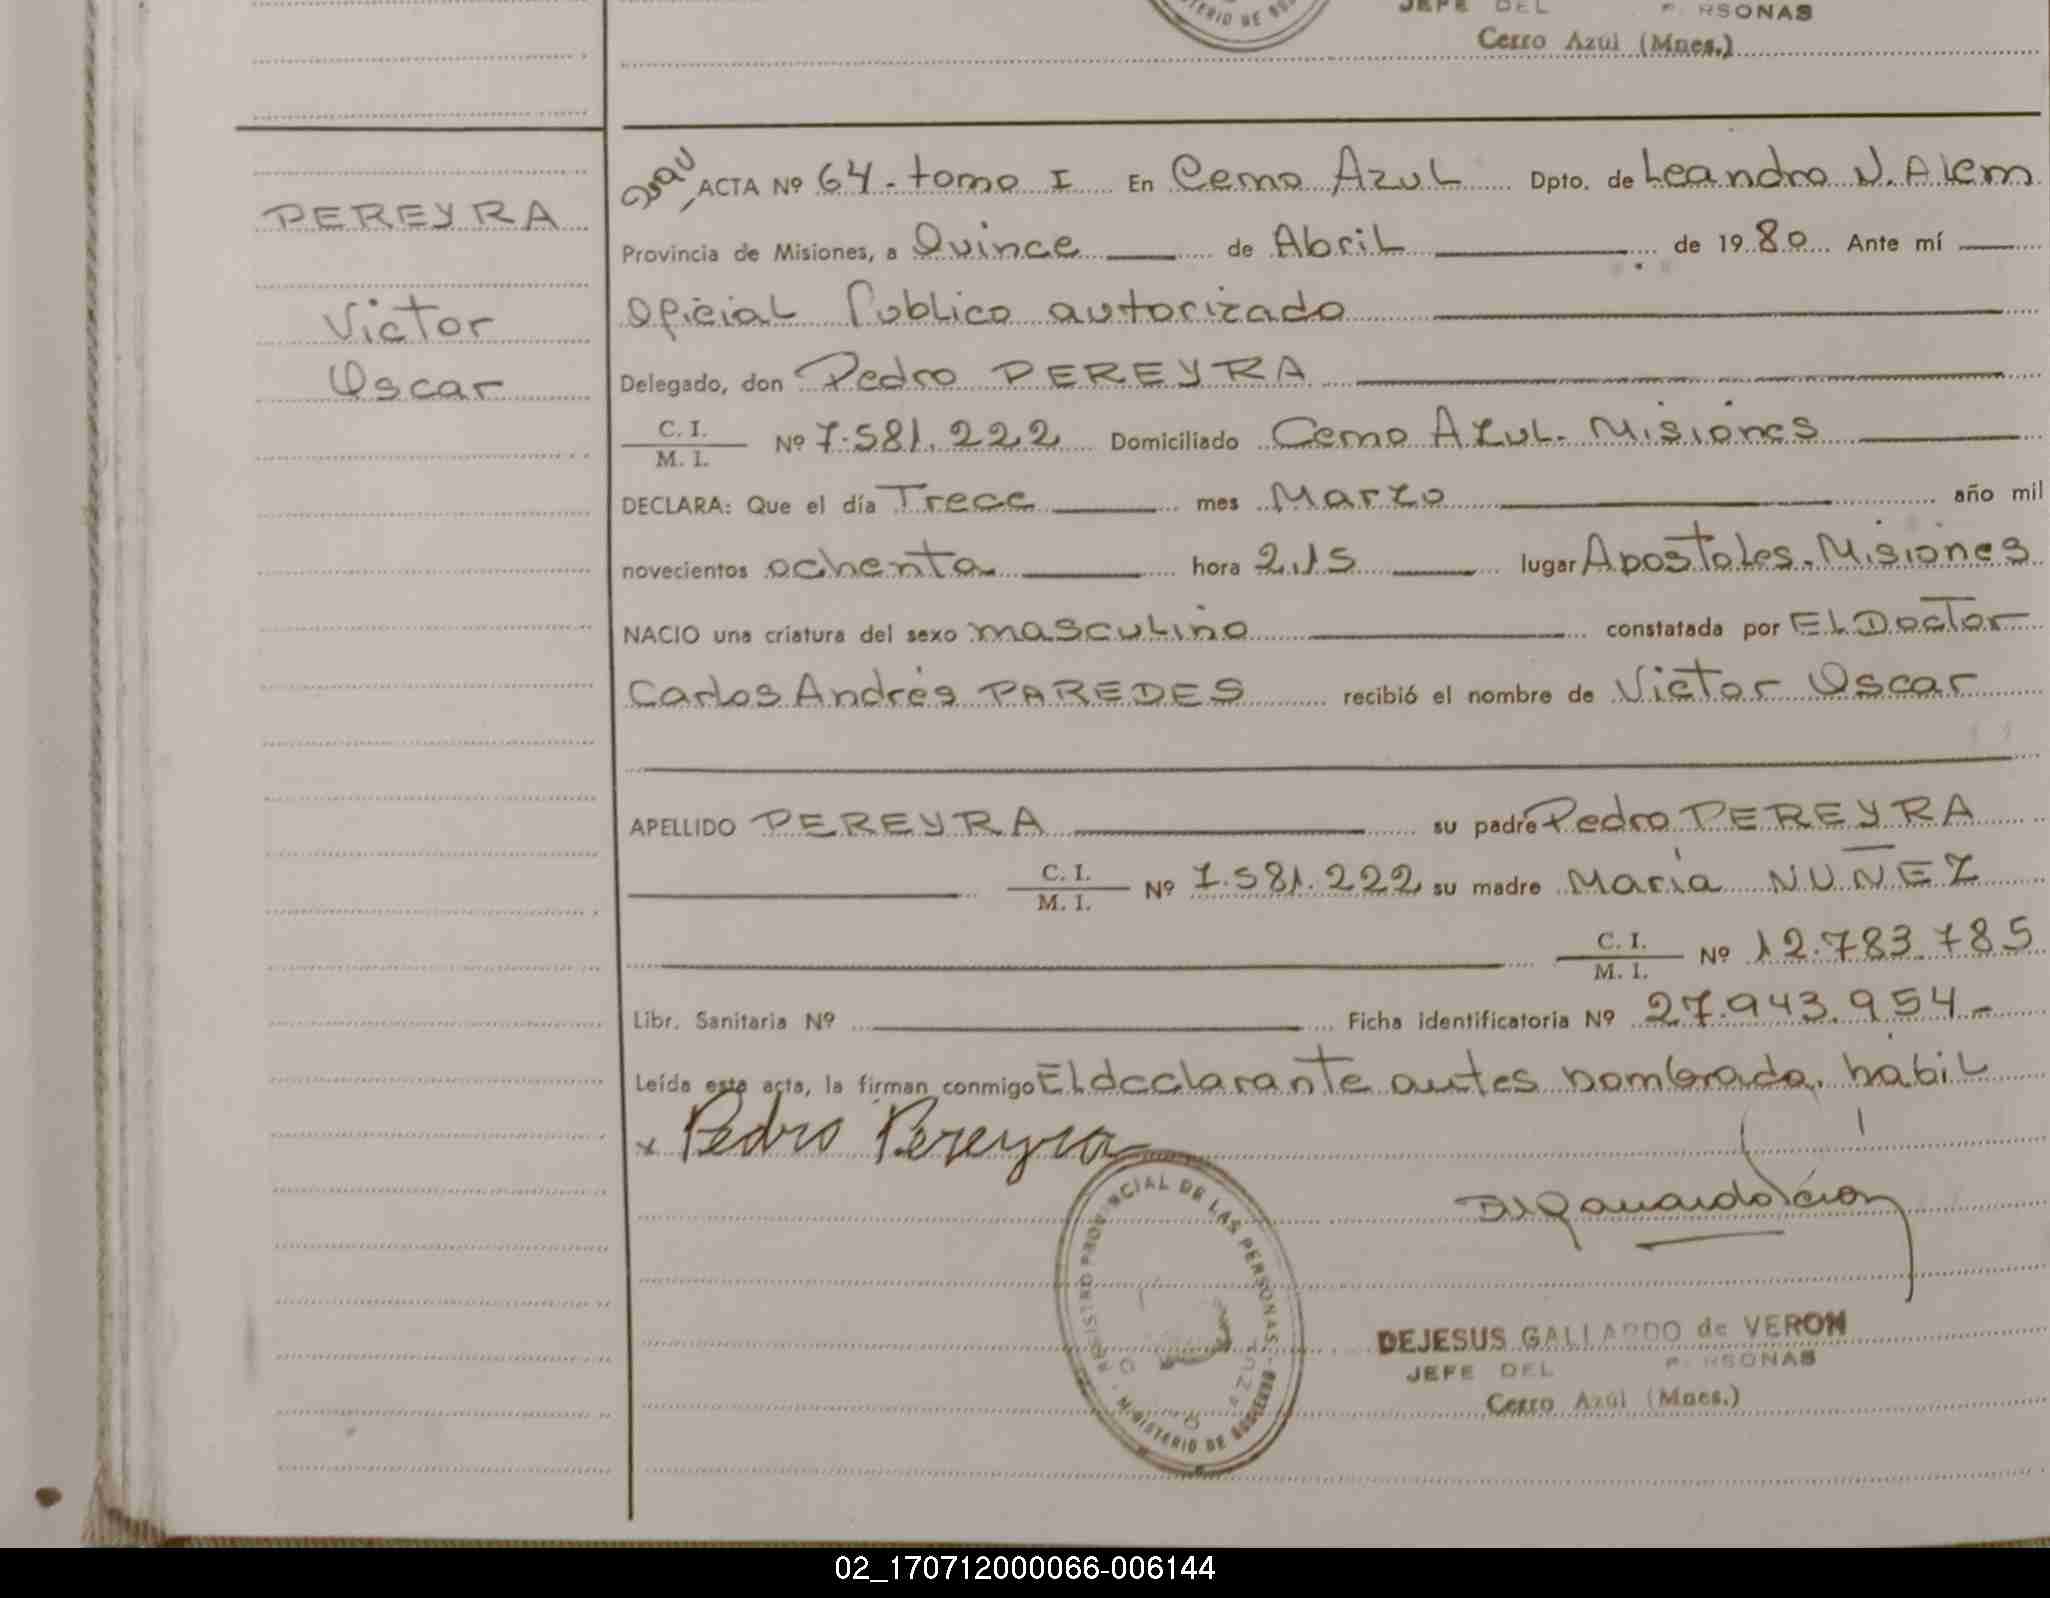 JEFE DEL P RSONAS
Cerro Azul (Mnes.)
ACTA Nº 64. tomo I En Cerro Azul Dpto. de Leandro N. Alem
PEREYRA
Provincia de Misiones, a Quince de Abril de 1980 Ante mí
Victor
Oficial Publico autorizado
Oscar
Delegado, don Pedro PEREYRA
C. I.
M. I. Nº 7.581.222 Domiciliado Cerro Azul. Misiones
DECLARA: Que el día Trece mes Marzo año mil
novecientos ochenta hora 2.15 lugar Apostoles. Misiones
NACIO una criatura del sexo masculino constatada por El Doctor
Carlos Andrés PAREDES recibió el nombre de Victor Oscar
APELLIDO PEREYRA su padre Pedro PEREYRA
C. I.
M. I. Nº 7.581.222 su madre María NUÑEZ
C. I.
M. I. Nº 12.783.785
Libr. Sanitaria Nº Ficha identificatoria Nº 27.943.954-
Leída esta acta, la firman conmigo El declarante antes nombrado, hábil
x Pedro Pereyra
REGISTRO PROVINCIAL DE LAS PERSONAS - MINISTERIO DE GOBIERNO
DEJESUS GALLARDO de VERON
JEFE DEL P RSONAS
Cerro Azul (Mnes.)
02_170712000066-006144